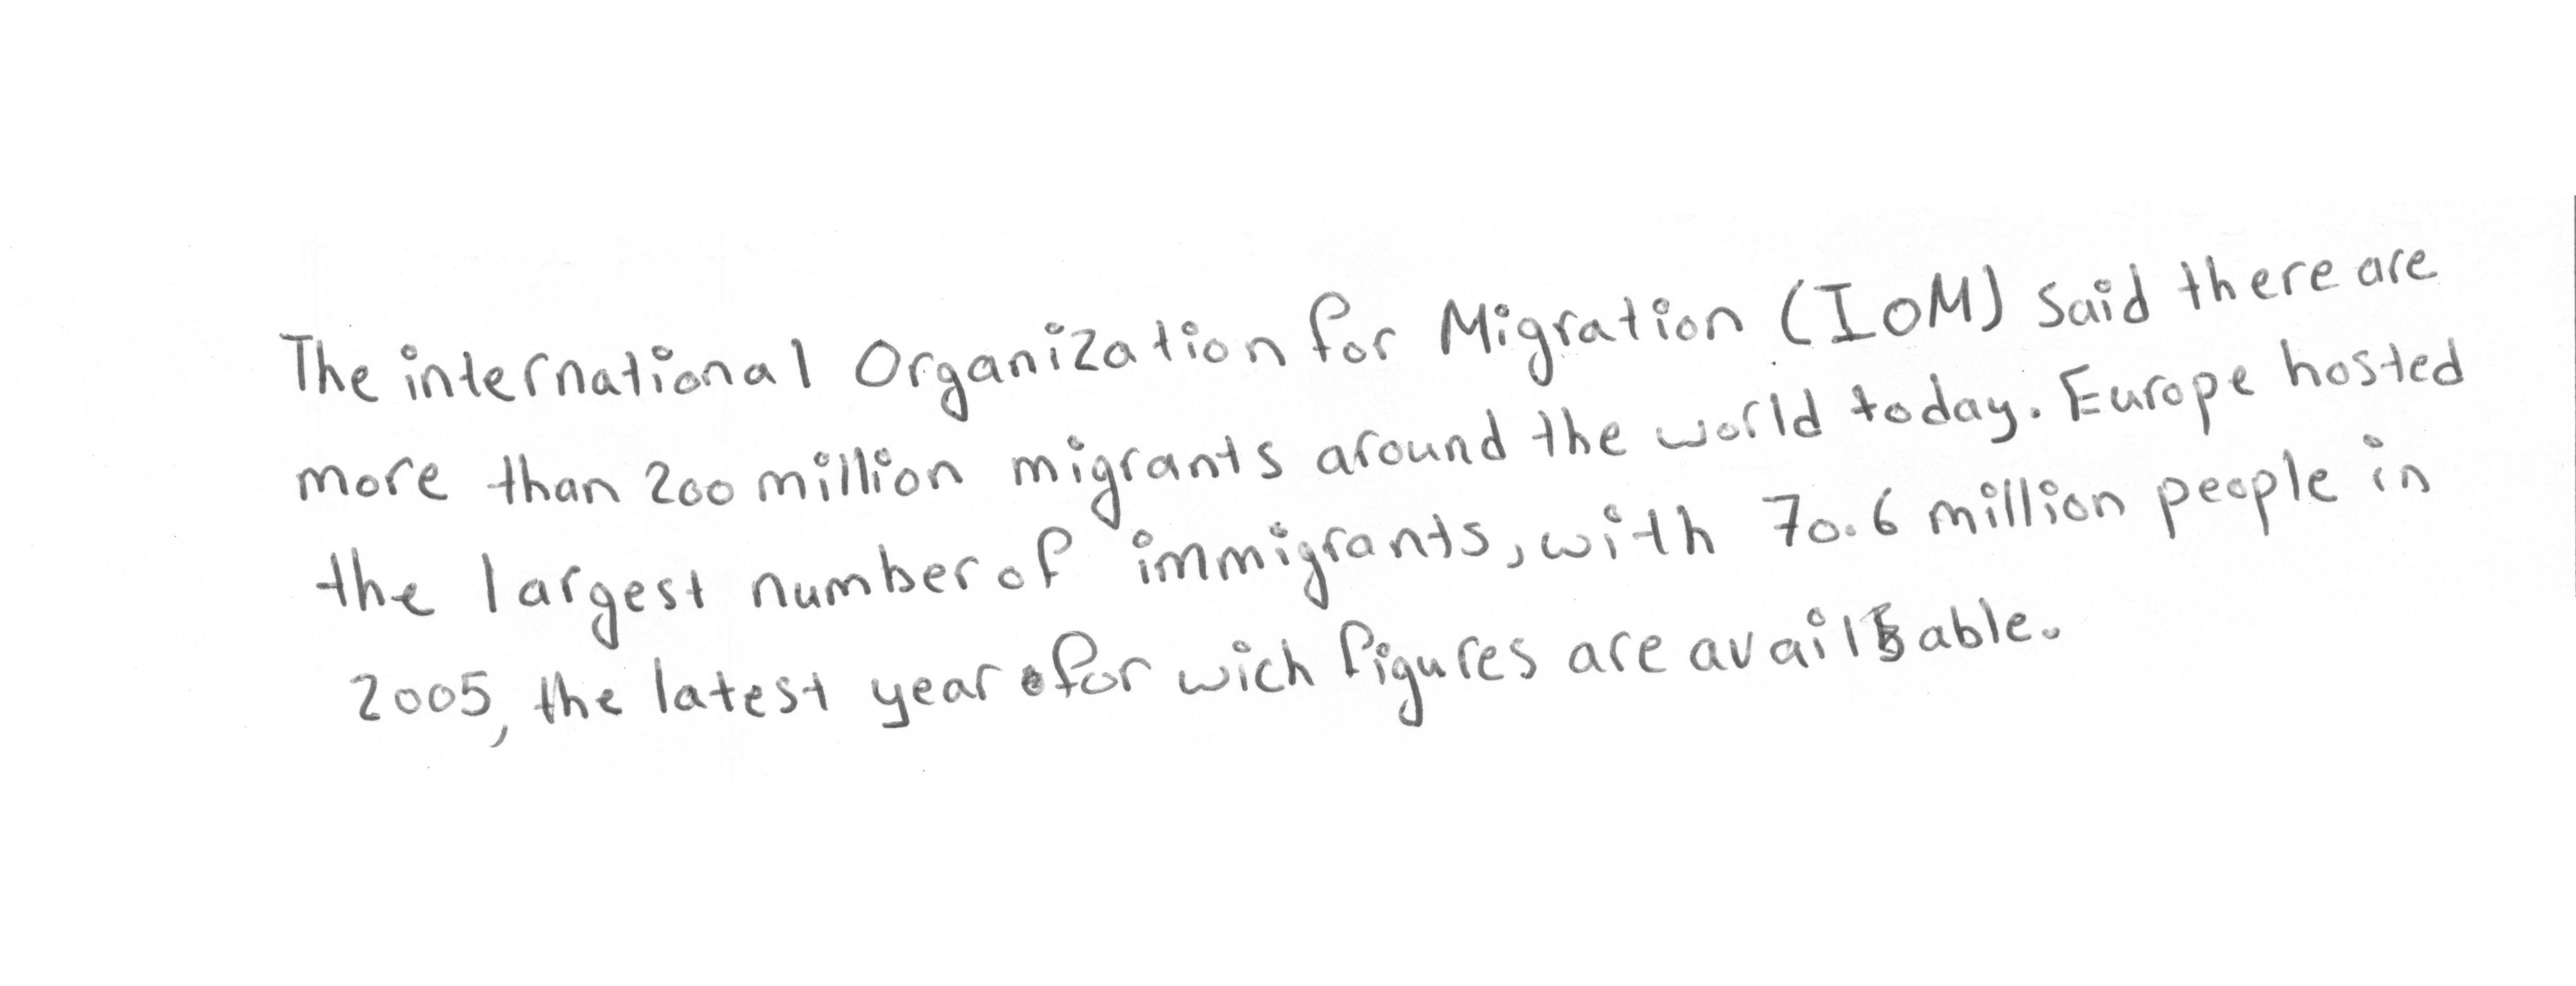 The international Organization for Migration (IOM) said there are
more than 200 million migrants around the world today. Europe hosted
the largest number of immigrants, with 70.6 million people in
2005, the latest year for wich figures are available.